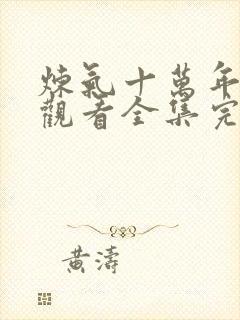 煉氣十萬年
觀看全集完
黃濤